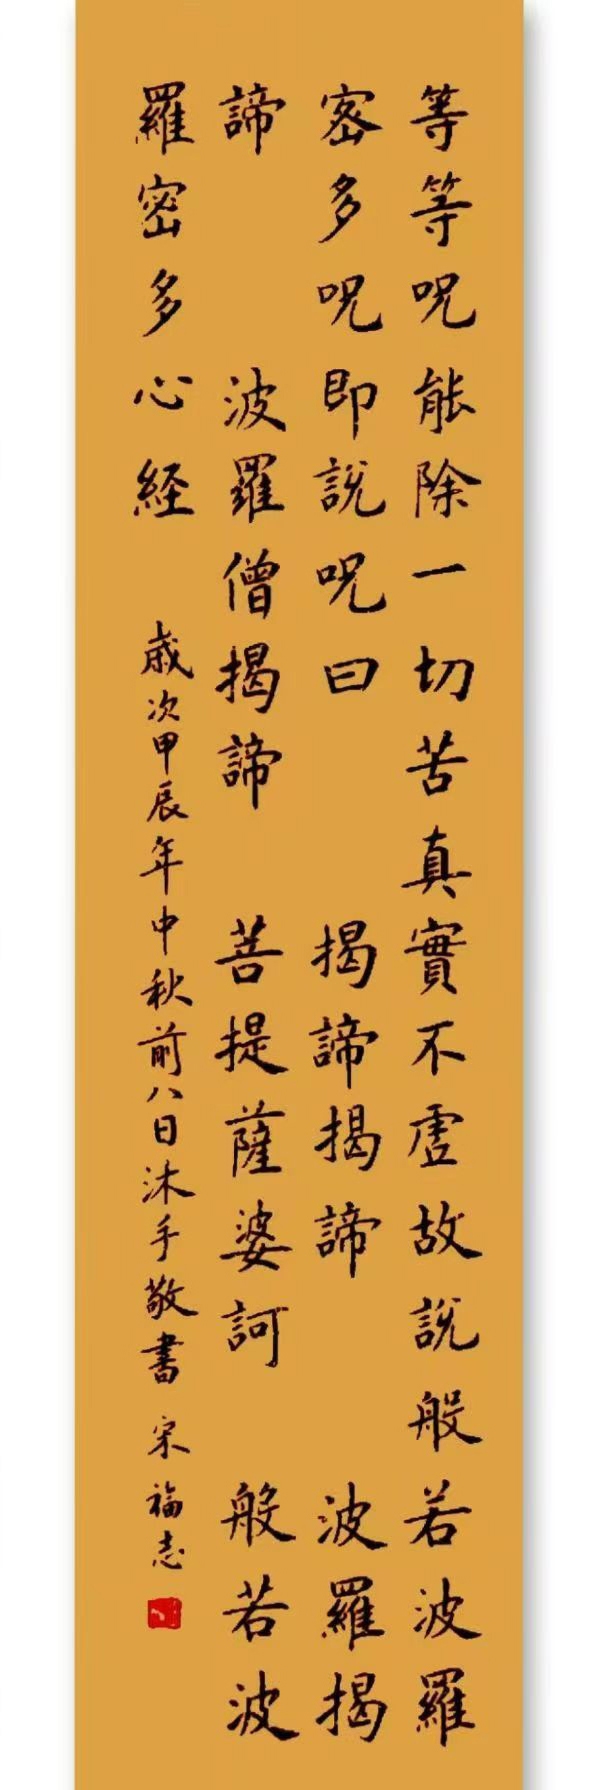 等等呪能除一切苦真實不虛故說般若波羅
密多呪即說呪曰 揭諦揭諦 波羅揭
諦 波羅僧揭諦 菩提薩婆訶 般若波
羅密多心経
歲次甲辰年中秋前八日沐手敬書 宋福志